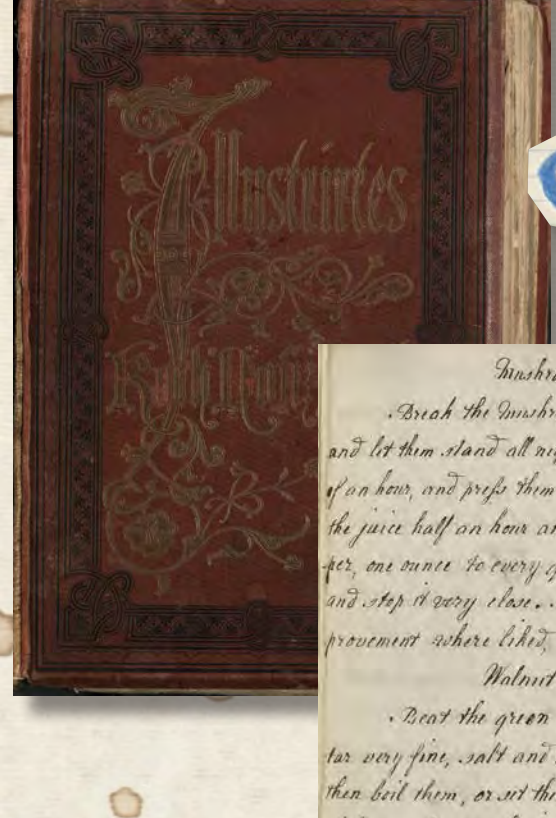 Illustrirtes
Koch
Mushr
Break the Mushr
and let them stand all ni
of an hour, and press them
the juice half an hour an
per, one ounce to every
and stop it very close.
provement where liked,
Walnut
Beat the green
tar very fine, salt and
then boil them, or set the